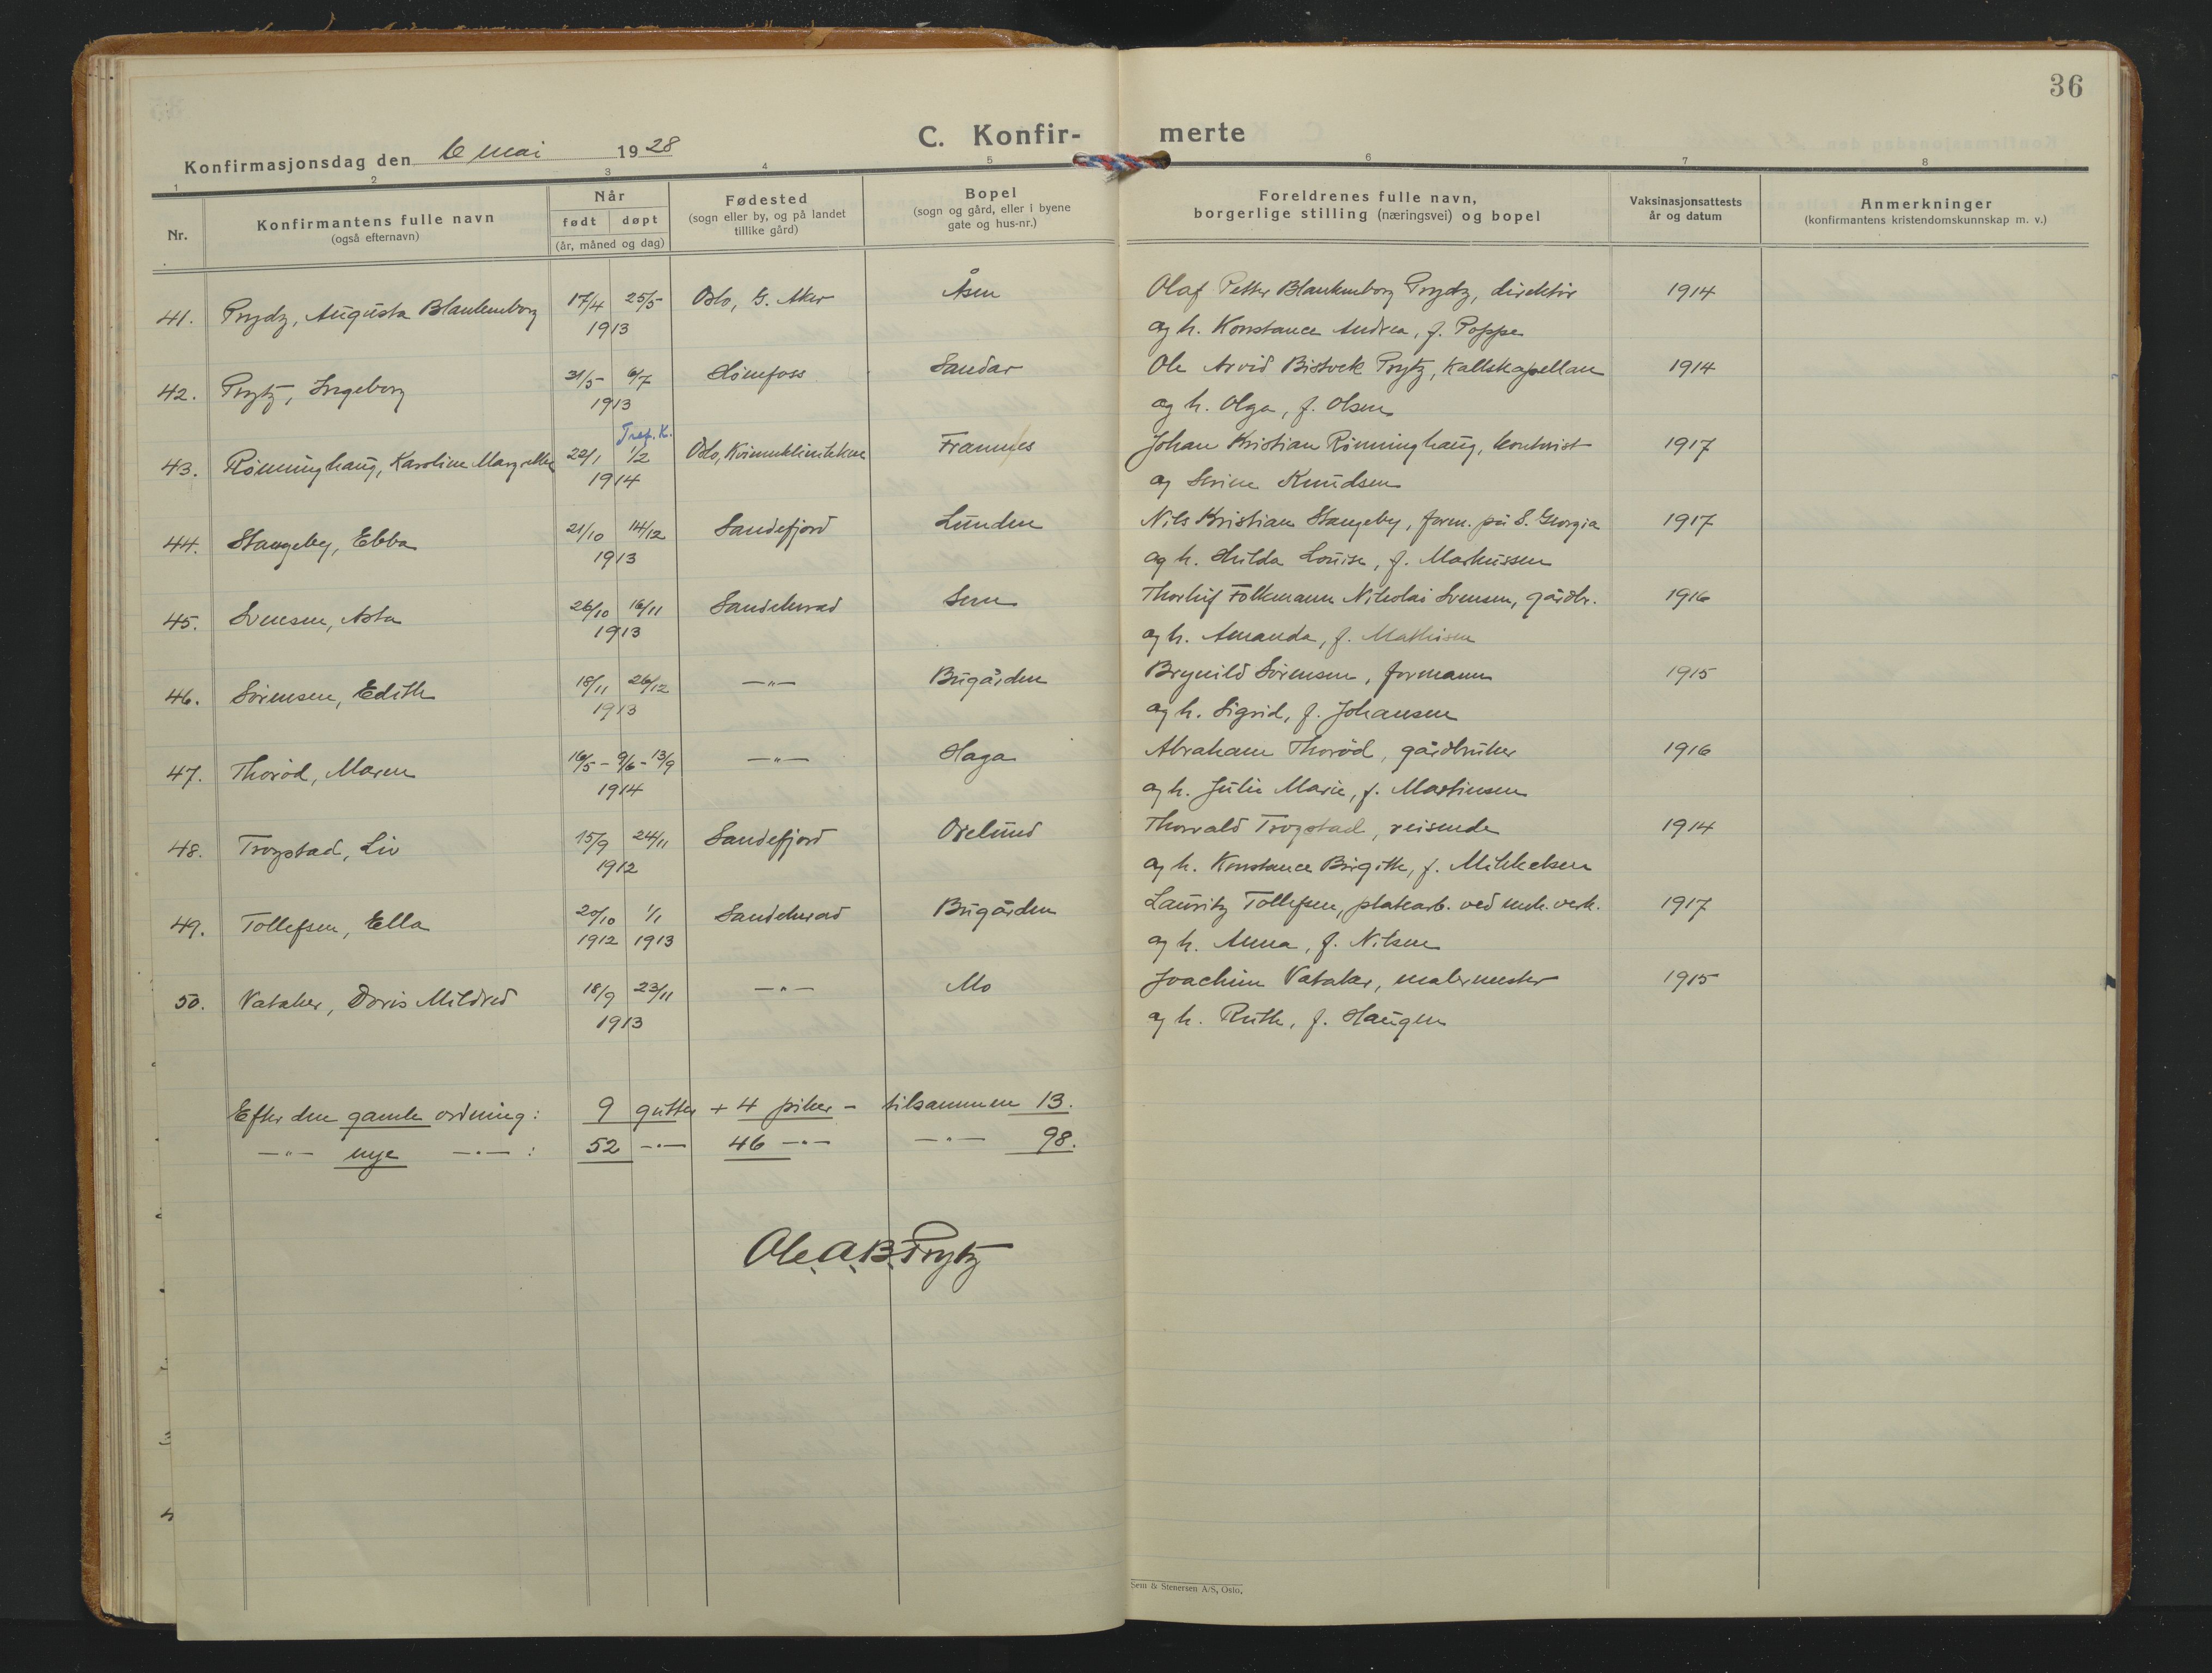 36
C. Konfir- merte
Konfirmasjonsdag den 6 mai 1928
1 2 3 4 5 6 7 8
Nr.
Konfirmantens fulle navn
(også efternavn)
Når
født døpt
(år, måned og dag)
Fødested
(sogn eller by, og på landet
tillike gård)
Bopel
(sogn og gård, eller i byene
gate og hus-nr.)
Foreldrenes fulle navn,
borgerlige stilling (næringsvei) og bopel
Vaksinasjonsattests
år og datum
Anmerkninger
(konfirmantens kristendomskunnskap m. v.)
41. Prydz, Augusta Blankenborg 17/4 25/5 Oslo, G. Aker Åsen Olaf Petter Blankenborg Prydz, direktør 1914
1913 og h. Konstance Andrea, f. Poppe
42. Prytz, Ingeborg 31/5 6/7 Hønefoss Sandar Ole Arvid Bistvek Prytz, Kallskapellan 1914
1913 og h. Olga, f. Olsen
Tref. K.
43. Rønninghaug, Karoline Margrethe 22/1 1/2 Oslo, Kvinneklinikken Framnes Johan Kristian Rønninghaug, kontorist 1917
1914 og Serine Knudsen
44. Stangeby, Ebba 21/10 14/12 Sandefjord Lunden Nils Kristian Stangeby, form. på S. Georgia 1917
1913 og h. Hilda Louise, f. Markussen
45. Svensen, Asta 26/10 16/11 Sandeherad Sem Thorleif Folkmann Nikolai Svensen, gårdbr. 1916
1913 og h. Amanda, f. Mathisen
46. Sørensen, Edith 18/11 26/12 —"— Bugården Brynild Sørensen, formann 1915
1913 og h. Sigrid, f. Johansen
47. Thorød, Maren 16/5 - 9/6 - 13/9 —"— Haga Abraham Thorød, gårdbruker 1916
1914 og h. Julie Marie, f. Martinsen
48. Trogstad, Liv 15/9 24/11 Sandefjord Orelund Thorvald Trogstad, reisende 1914
1912 og h. Konstance Birgitte, f. Mikkelsen
49. Tollefsen, Ella 20/10 1/1 Sandeherad Bugården Lauritz Tollefsen, platearb. ved mek. verk. 1917
1912 1913 og h. Anna, f. Nilsen
50. Vataker, Doris Mildred 18/9 23/11 —"— Mo Joachim Vataker, malermester 1915
1913 og h. Ruth, f. Haugen
Efter den gamle ordning: 9 gutter + 4 piker - tilsammen 13.
—"— nye —"— : 52 —"— 46 —"— —"— 98.
Ole A. B. Prytz
Sem & Stenersen A/S, Oslo.